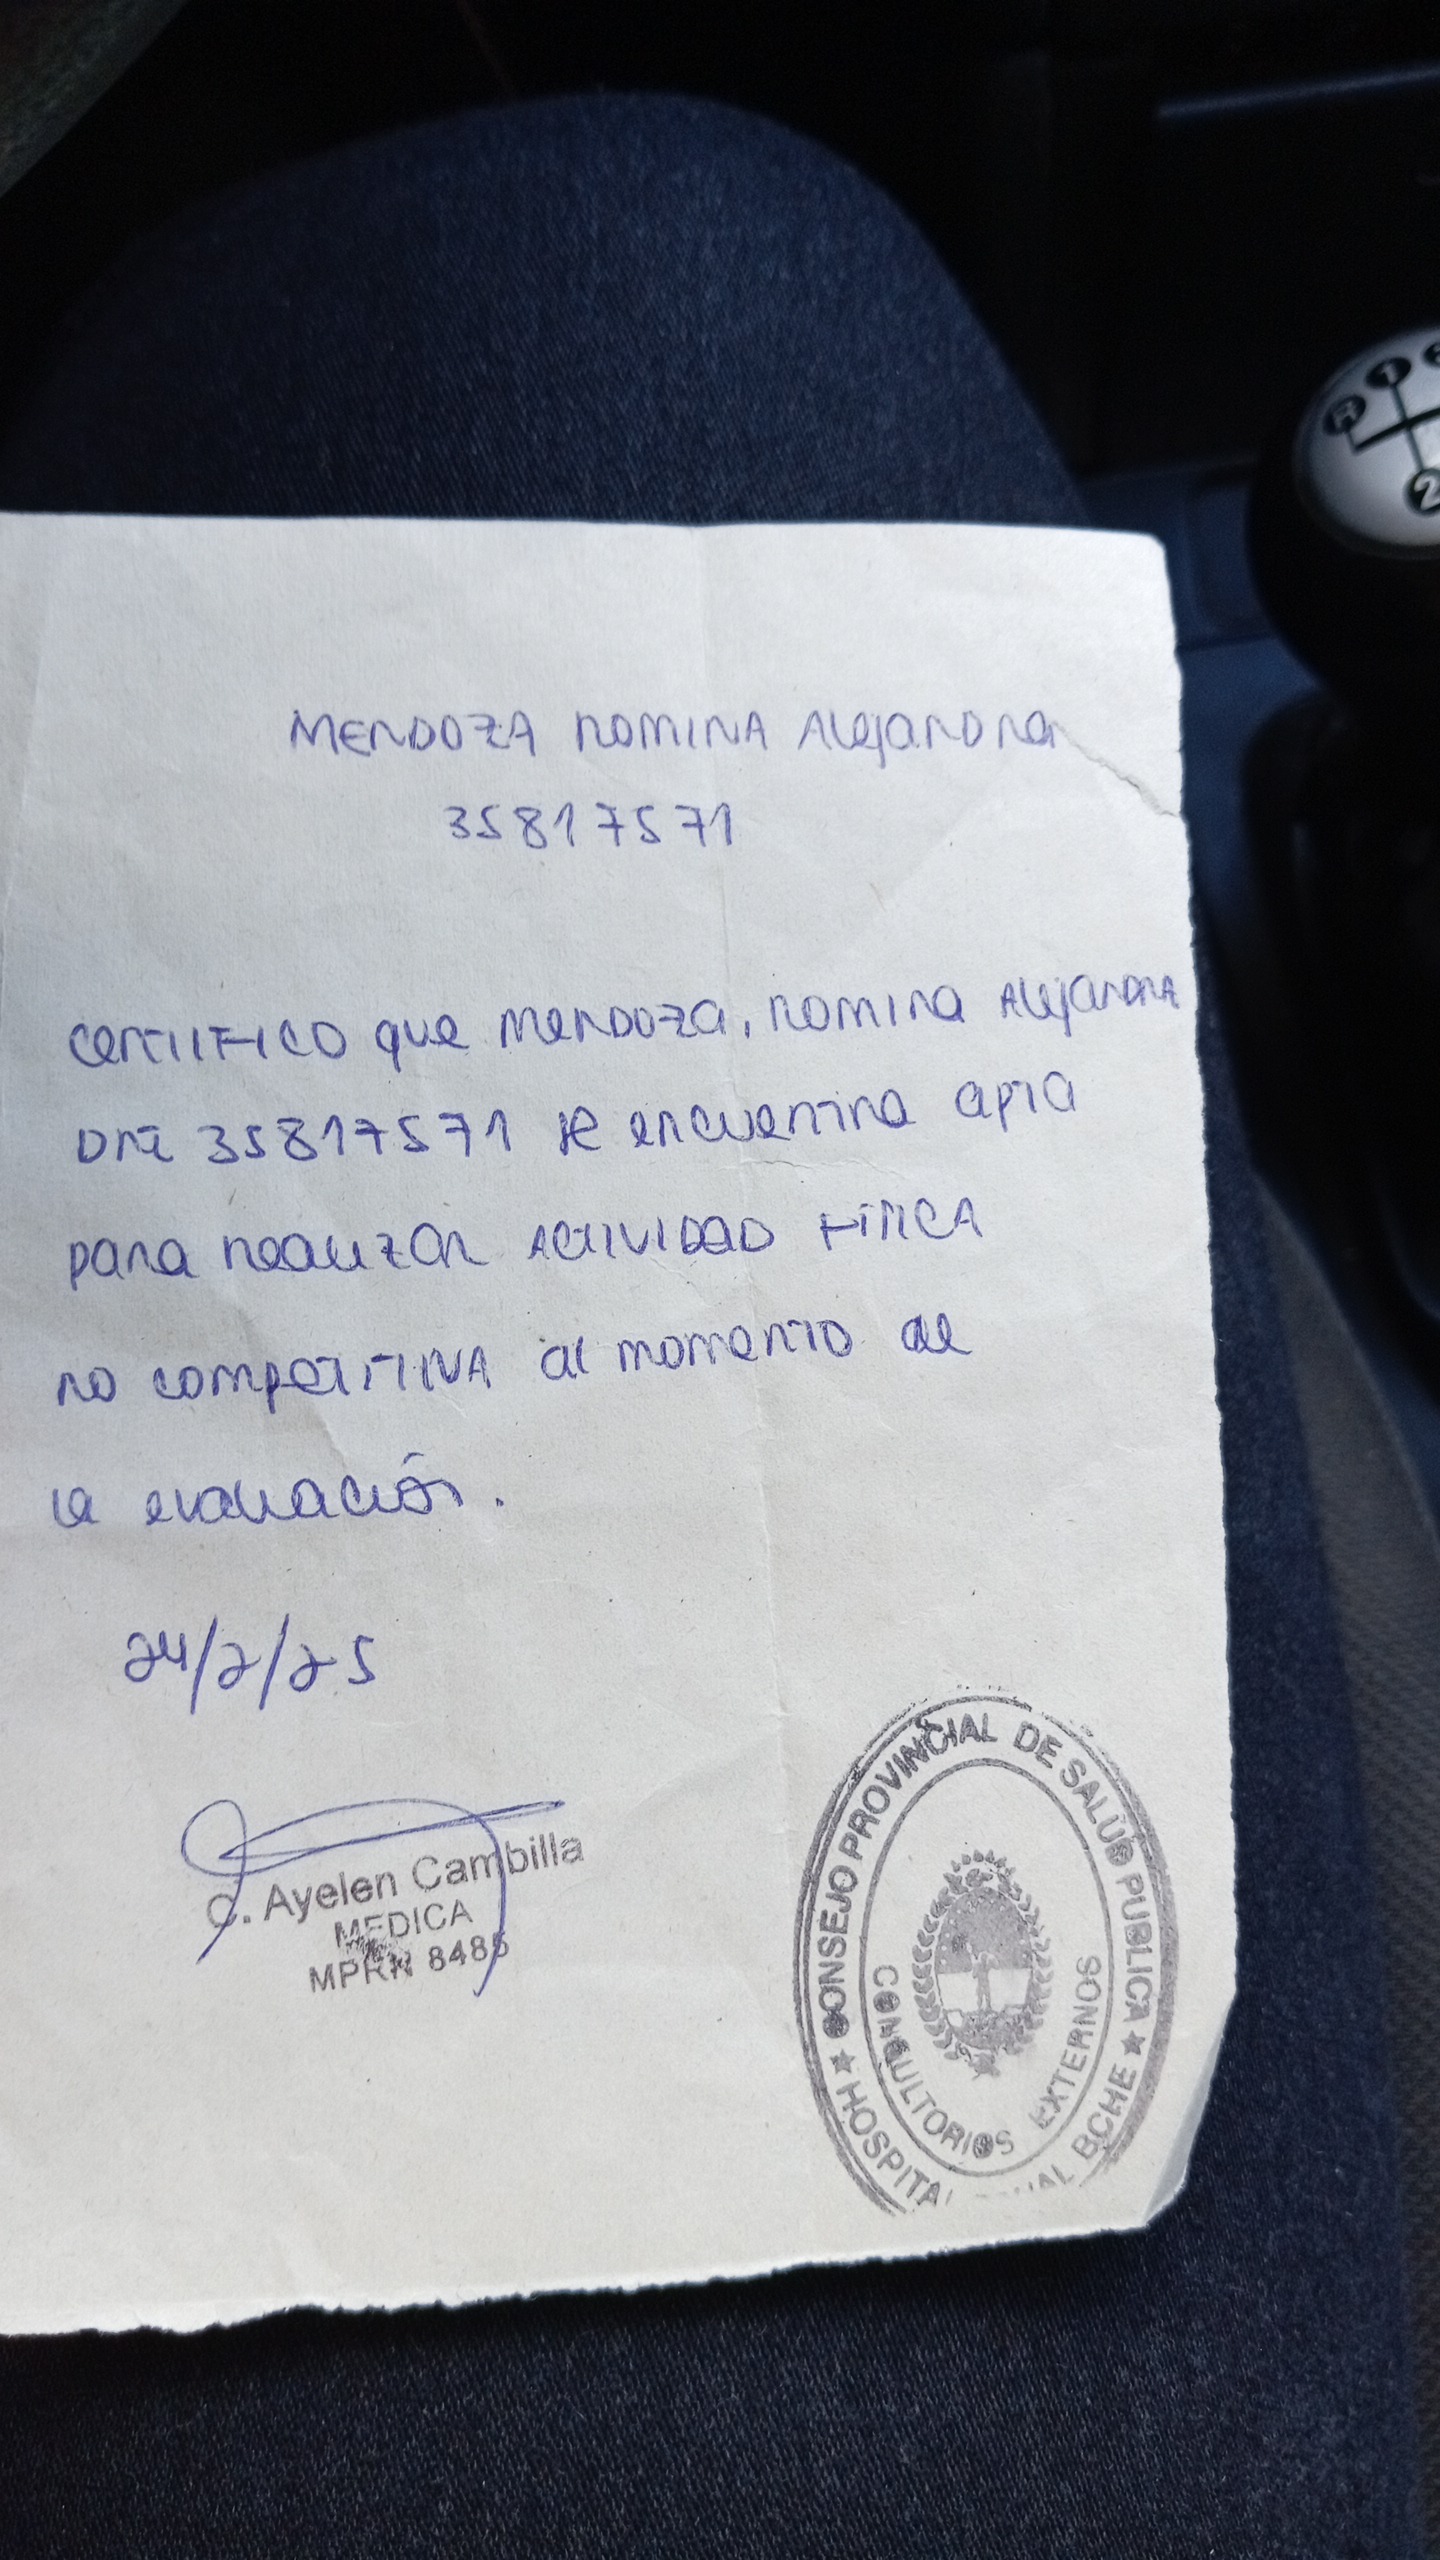 MENDOZA ROMINA Alejandra
35817571
CERTIFICO que MENDOZA, ROMINA Alejandra
DNI 35817571 se encuentra apta
para realizar ACTIVIDAD FISICA
no competitiva al momento de
la evaluación.
24/2/25
C. Ayelen Cambilla
MEDICA
MPRN 8485
CONSEJO PROVINCIAL DE SALUD PUBLICA
HOSPITAL BCHE
CONSULTORIOS EXTERNOS
R 1
2